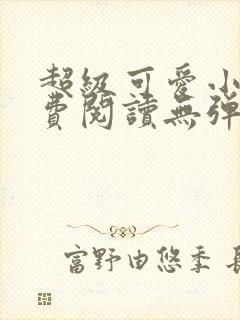 超級可愛小
費閱讀無彈
富野由悠季